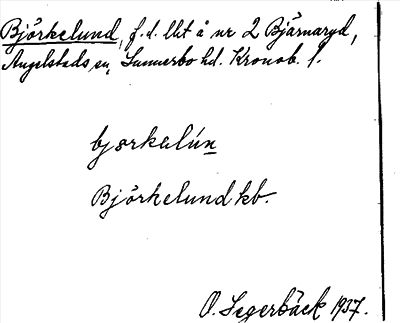 Björkelund, f.d. lht å nr 2 Bjärnaryd,
Angelstads sn, Sunnerbo hd. Kronob. l.
bjørkalún
Björkelund kb.
O. Segerbäck 1937.